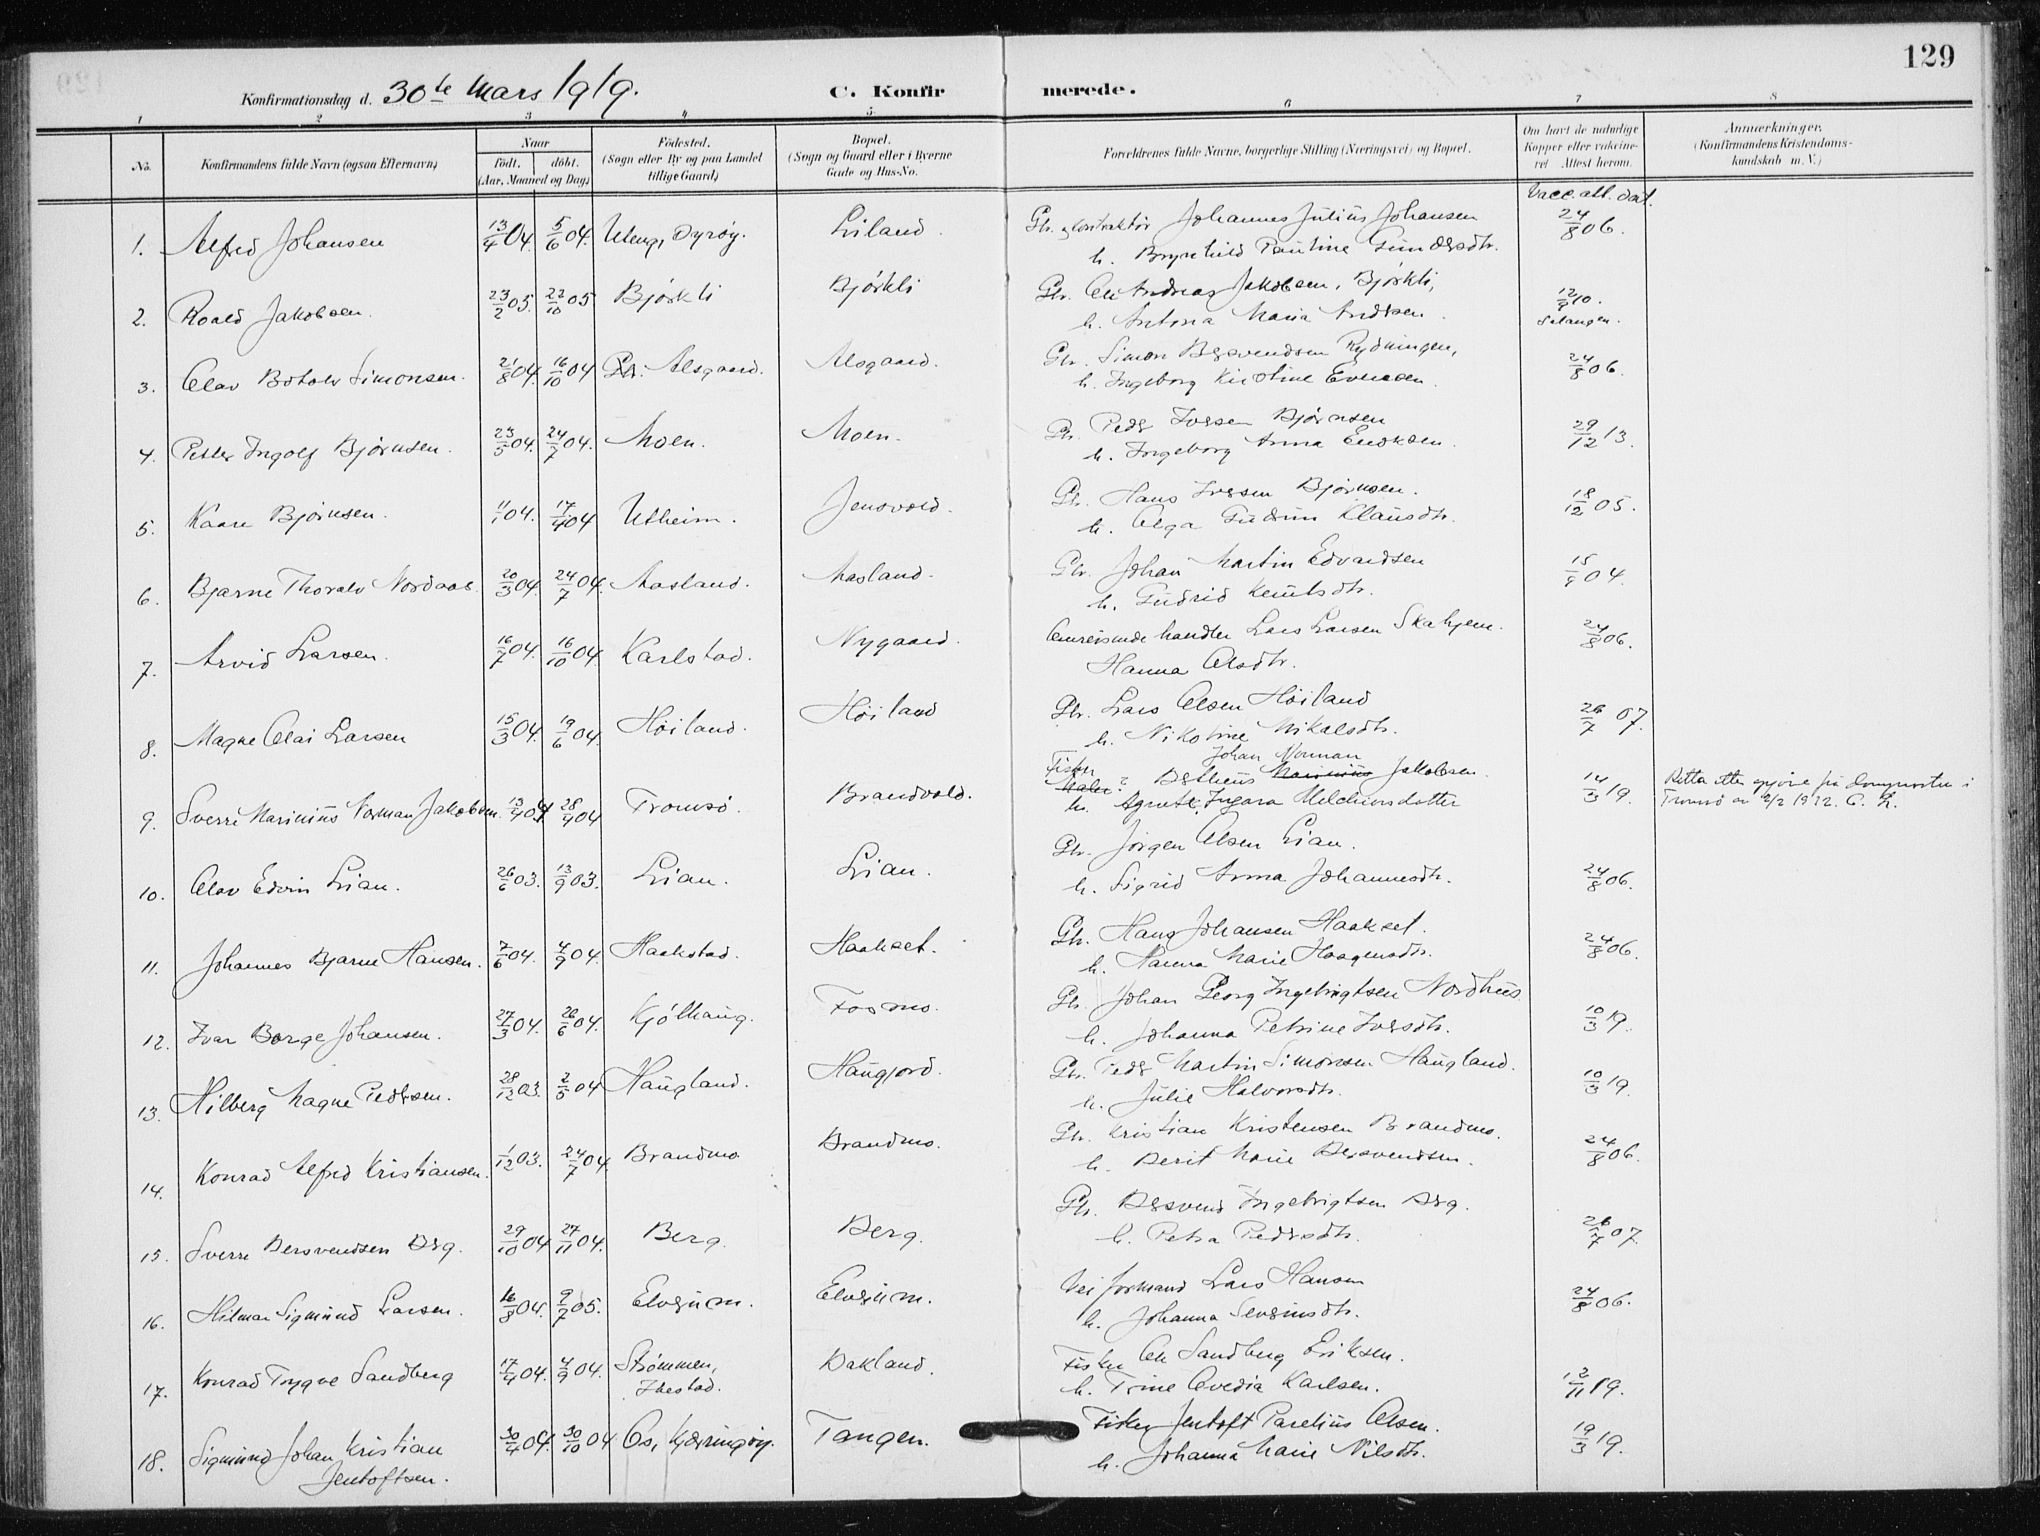 129
Konfirmationsdag d. 30te Mars 1919. C. Konfirmerede.
1 2 3 4 5 6 7 8
No. Konfirmandens fulde Navn (ogsaa Efternavn) Naar født. døbt. (Aar, Maaned og Dag) Fødested. (Sogn eller By og paa Landet tillige Gaard) Bopæl. (Sogn og Gaard eller i Byerne Gade og Hus-No. Forældrenes fulde Navne, borgerlige Stilling (Næringsvei) og Bopæl. Om havt de naturlige Kopper eller vakcineret. Attest herom. Anmærkninger. (Konfirmandens Kristendomskundskab m. V.)
Vacc. att. dat.
1. Alfred Johansen 13/4 04. 5/6 04. Dyrøy. Liland. Gbr. Johannes Julius Johansen 24/8 06.
h. Brynhild Pauline
2. Roald Jakobsen. 23/2 05. 22/10 05 Bjørkli Bjørkli Gbr. Ole Andreas Jakobsen, Bjørkli, 12/9 10.
h. Antona Maria Andersen. Salangen.
3. Olav Botolv Simonsen. 21/8 04. 16/10 04 Alsgaard. Alsgaard. Gbr. Simon Bersvendsen Rydningen, 24/8 06.
h. Ingeborg Kirstine Evensen.
4. Petter Ingolf Bjørnsen. 23/5 04. 24/7 04. Moen. Moen. Gbr. Peder Iversen Bjørnsen 29/12 13.
h. Ingeborg Anna Eriksen.
5. Kaare Bjørnsen. 1/1 04. 17/4 04 Utheim. Jensvold. Gbr. Hans Iversen Bjørnsen. 18/12 05.
h. Olga Gudrun Klausdtr.
6. Bjarne Thoralv Nordaas. 20/3 04. 24/7 04. Aasland. Aasland. Gbr. Johan Martin Edvardsen 15/9 04.
h. Gudrid Knutsdtr.
7. Arvid Larsen. 16/7 04. 16/10 04. Karlstad. Nygaard. Omreisende handler Lars Larsen Skahjem. 24/8 06.
Hanna Olsdtr.
8. Magne Olai Larsen 15/3 04. 19/6 04. Høiland. Høiland Gbr. Lars Olsen Høiland 26/7 07.
h. Nikoline Mikalsdtr.
Johan Norman
9. Sverre Marinius Norman Jakobsen. 13/4 04 28/4 04 Tromsø. Brandvold. Fisker Maler? Marinius Jakobsen. 14/3 19.
h. Agnete Ingara Melchiorsdatter
Tromsø av 2/2 1932.
10. Olav Edvin Lian. 26/6 03. 13/9 03. Lian. Lian. Gbr. Jørgen Olsen Lian. 24/8 06.
h. Sigrid Anna Johannesdtr.
11. Johannes Bjarne Hansen. 7/6 04. 4/9 04. Haakstad. Haakset. Gbr. Hans Johansen Haakset. 24/8 06.
h. Hanna Marie Haagensdtr.
12. Ivar Borge Johansen. 27/3 04. 26/6 04. Kjølhaug. Fosmo. Gbr. Johan Georg Ingebrigtsen Nordhus 10/3 19.
h. Johanna Petrine Iversdtr.
13. Hilberg Magne Pedersen. 28/12 03. 2/5 04 Haugland. Haugjord. Gbr. Peder Martin Simonsen Haugland. 10/3 19.
h. Julie Halvorsdtr.
14. Konrad Alfred Kristiansen. 1/12 03. 24/7 04. Brandmo Brandmo. Gbr. Kristian Kristensen Brandmo. 24/8 06.
h. Berit Marie Bersvendsen.
15. Sverre Bersvendsen Berg. 29/10 04 27/11 04. Berg. Berg. Gbr. Bersvend Ingebrigtsen Berg. 26/7 07.
h. Petra Pedersdtr.
16. Hilmar Sigmund Larsen. 16/8 04. 9/7 05. Elverum. Elverum. Veiformand Lars Hansen 24/8 06.
h. Johanna Severinsdtr.
17. Konrad Trygve Sandberg 17/4 04. 4/9 04. Strømmen, Ibestad. Bakland. Fisker Ole Sandberg Eriksen. 12/11 19.
h. Trine Ovedia Karlsen.
18. Sigmund Johan Kristian Jentoftsen. 30/4 04. 30/10 04 Os, Kjerringøy. Tangen. Fisker Jentoft Parelius Olsen. 19/3 19.
h. Johanna Marie Nilsdtr.